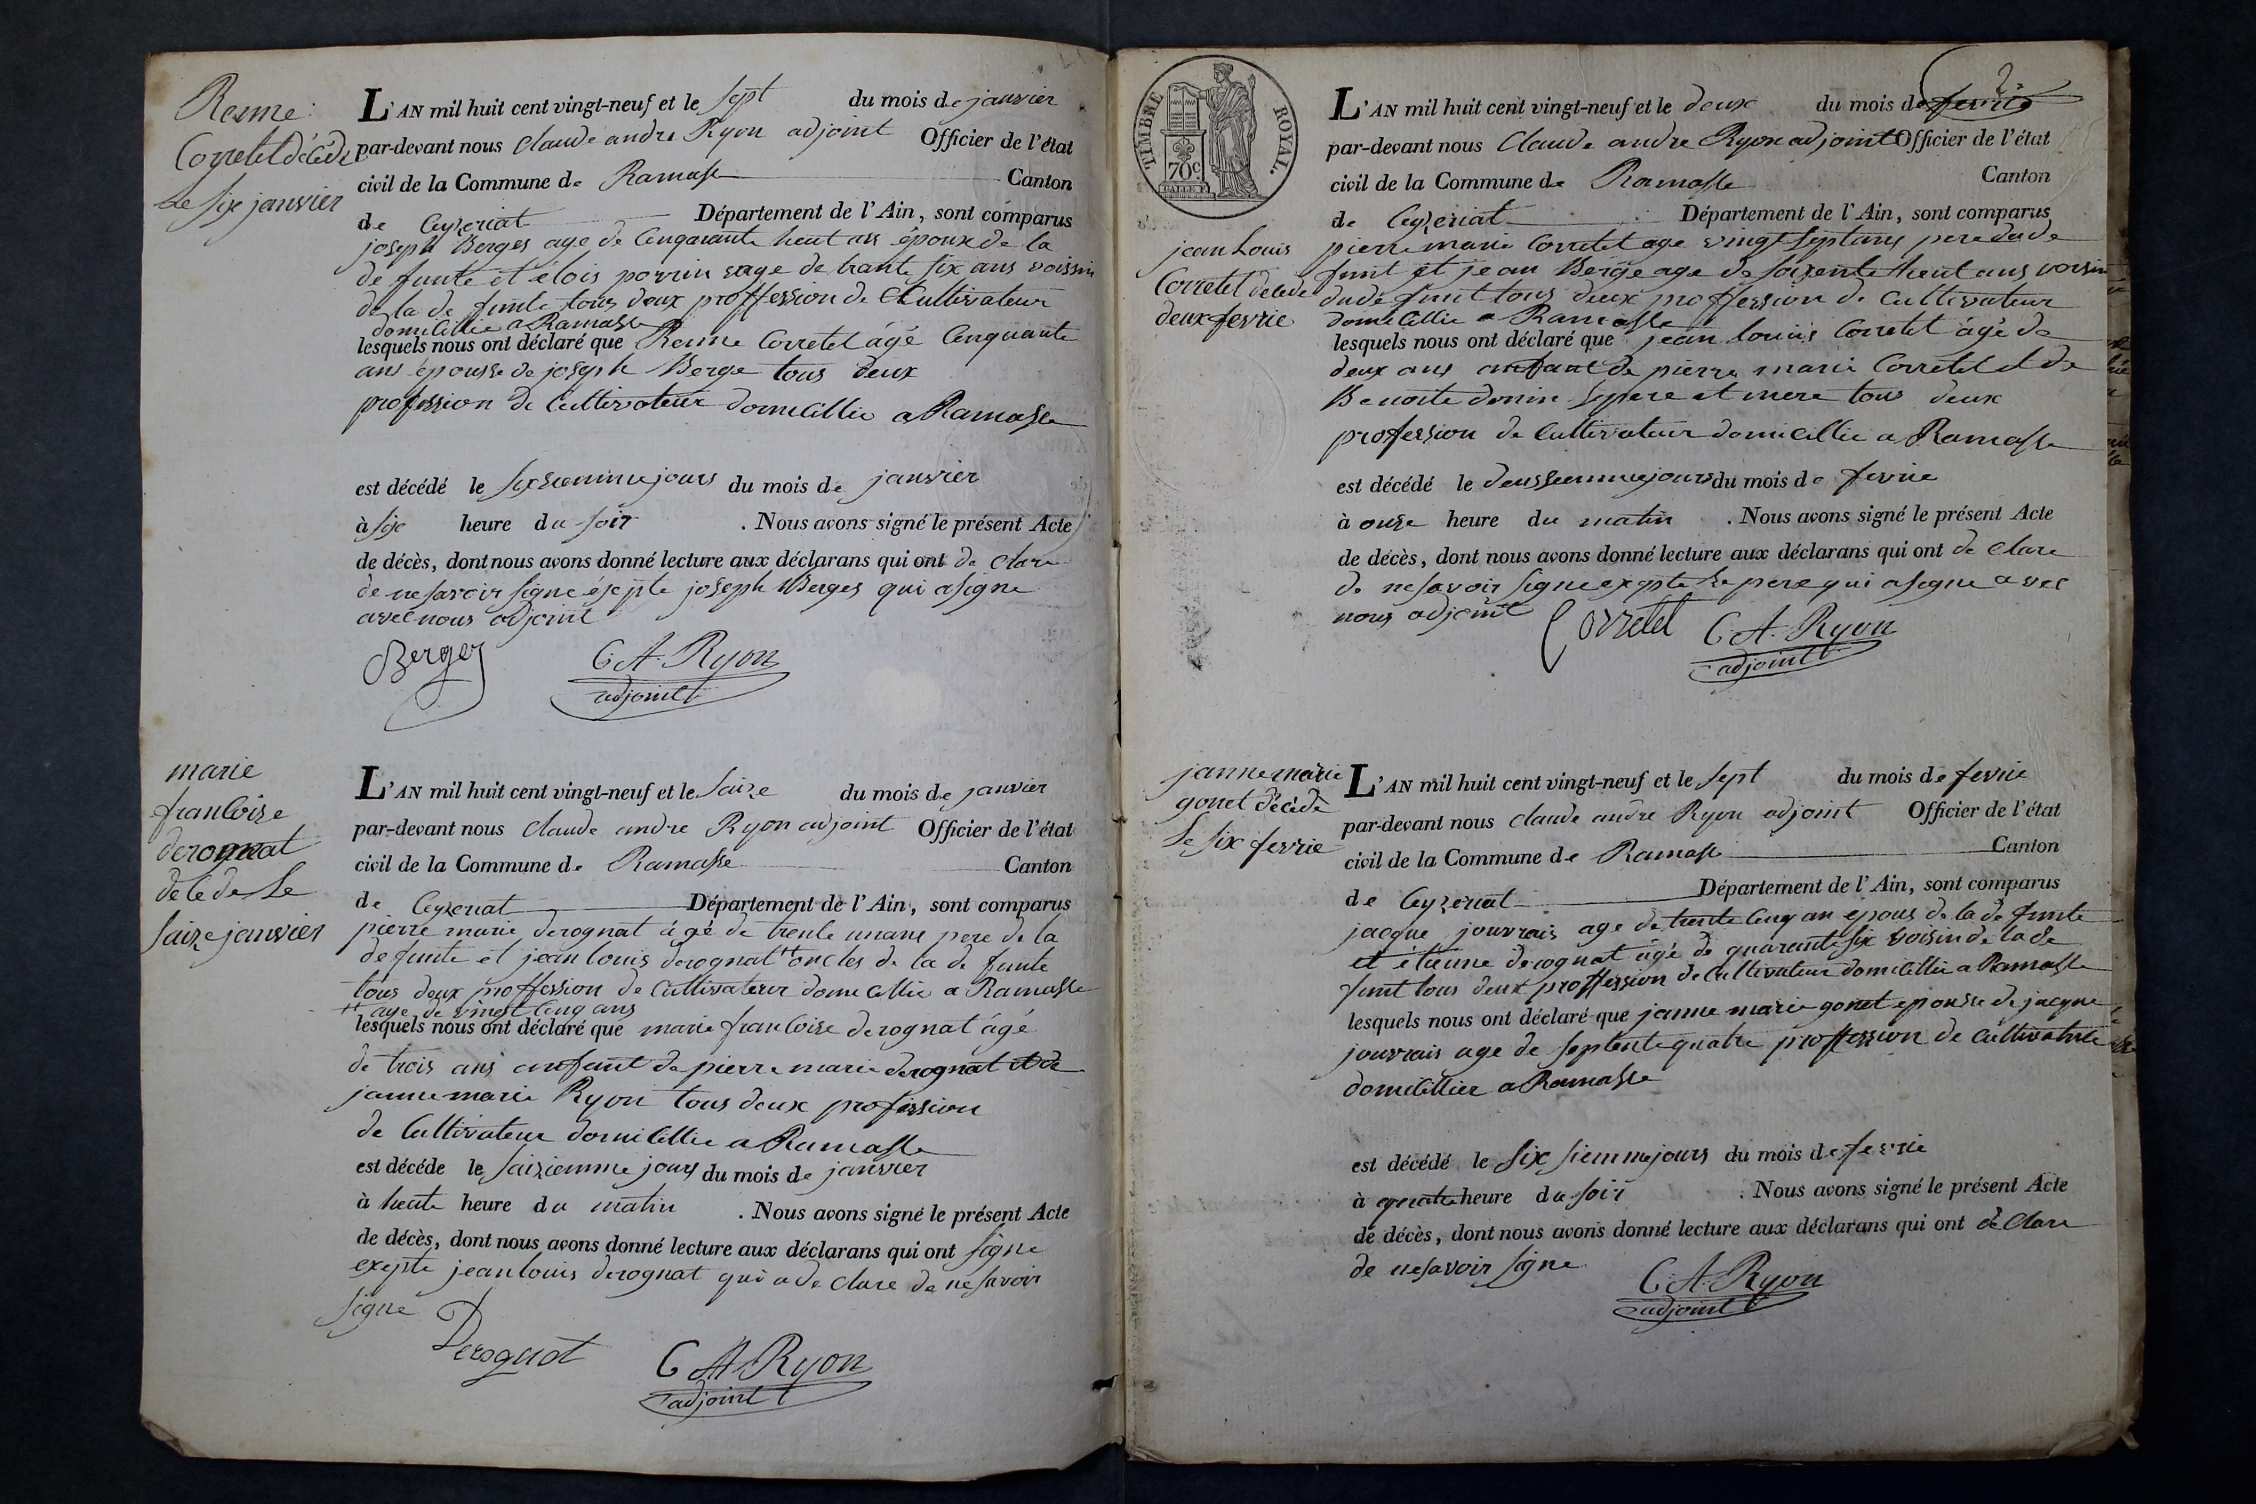 Renne
Corretet décéde
Le six janvier
L'AN mil huit cent vingt-neuf et le sept du mois de janvier
par-devant nous Claude andre Ryon adjoint Officier de l'état
civil de la Commune de Ramasse Canton
de Ceyzeriat Département de l'Ain, sont comparus
joseph Berges age de Cenquante heut ans époux de la
de funte et élois perrin age de trante six ans voissin
de la de funte tous deux proffession de Cultivateur
domicillie a Ramasse
lesquels nous ont déclaré que Renne Corretet ágé Cenquante
ans épousse de joseph Berge tous deux
profession de Cultivateur domicillie a Ramasse
est décédé le sixsiemme jours du mois de janvier
à six heure du soir . Nous avons signé le présent Acte
de décès, dont nous avons donné lecture aux déclarans qui ont de clare
de ne savoir signe éxepte joseph Berges qui a signe
avec nous adjoint
Berger C A Ryon
adjoint
marie
francoise
derognat
décéde Le
saize janvier
L'AN mil huit cent vingt-neuf et le saize du mois de janvier
par-devant nous Claude andre Ryon adjoint Officier de l'état
civil de la Commune de Ramasse Canton
de Ceyzeriat Département de l'Ain, sont comparus
pierre marie derognat ágé de trente unans pere de la
de funte et jean louis derognat oncles de la de funte
tous deux proffession de Cultivateur domicillie a Ramasse
age de vingt cinq ans
lesquels nous ont déclaré que marie francoise derognat ágé
de trois ans enfant de pierre marie derognat et de
janne marie Ryon tous deux profession
de Cultivateur domicillie a Ramasse
est décédé le saiziemme jours du mois de janvier
à heute heure du matin . Nous avons signé le présent Acte
de décès, dont nous avons donné lecture aux déclarans qui ont signe
exepte jean louis derognat qui a de clare de ne savoir
signe
Derognat C A Ryon
adjoint
2
TIMBRE ROYAL.
70c
jean Louis
Corretet décéde
deux fevrie
L'AN mil huit cent vingt-neuf et le deux du mois de fevrie
par-devant nous Claude andre Ryon adjoint Officier de l'état
civil de la Commune de Ramasse Canton
de Ceyzeriat Département de l'Ain, sont comparus
pierre marie Corretet age vingt septans pere du de
funt et jean Berge age de soixente heut ans voisin
du de funt tous deux proffession de Cultivateur
domicillie a Ramasse
lesquels nous ont déclaré que jean louis Corretet ágé de
deux ans enfant de pierre marie Corretet et de
Benoite donin se pere et mere tous deux
profession de Cultivateur domicillie a Ramasse
est décédé le deussiemme jours du mois de fevrie
à onze heure du matin . Nous avons signé le présent Acte
de décès, dont nous avons donné lecture aux déclarans qui ont de clare
de ne savoir signe exepte Le pere qui a signe avec
nous adjoint Corretet C A Ryon
adjoint
janne marie
gonet décéde
Le six fevrie
L'AN mil huit cent vingt-neuf et le sept du mois de fevrie
par-devant nous Claude andre Ryon adjoint Officier de l'état
civil de la Commune de Ramasse Canton
de Ceyzeriat Département de l'Ain, sont comparus
jacque jouvrais age de trente cenq an epous de la de funte
et étienne derognat ágé de quarante six voisin de la de
funt tous deux proffession de Cultivateur domicillie a Ramasse
lesquels nous ont déclaré que janne marie gonet epousse de jacque
jouvrais age de septente quatre proffession de Cultivatrice
domicillier a Ramasse
est décédé le six siemme jours du mois de fevrie
à quatre heure du soir . Nous avons signé le présent Acte
de décès, dont nous avons donné lecture aux déclarans qui ont de clare
de ne savoir signe
C A Ryon
adjoint